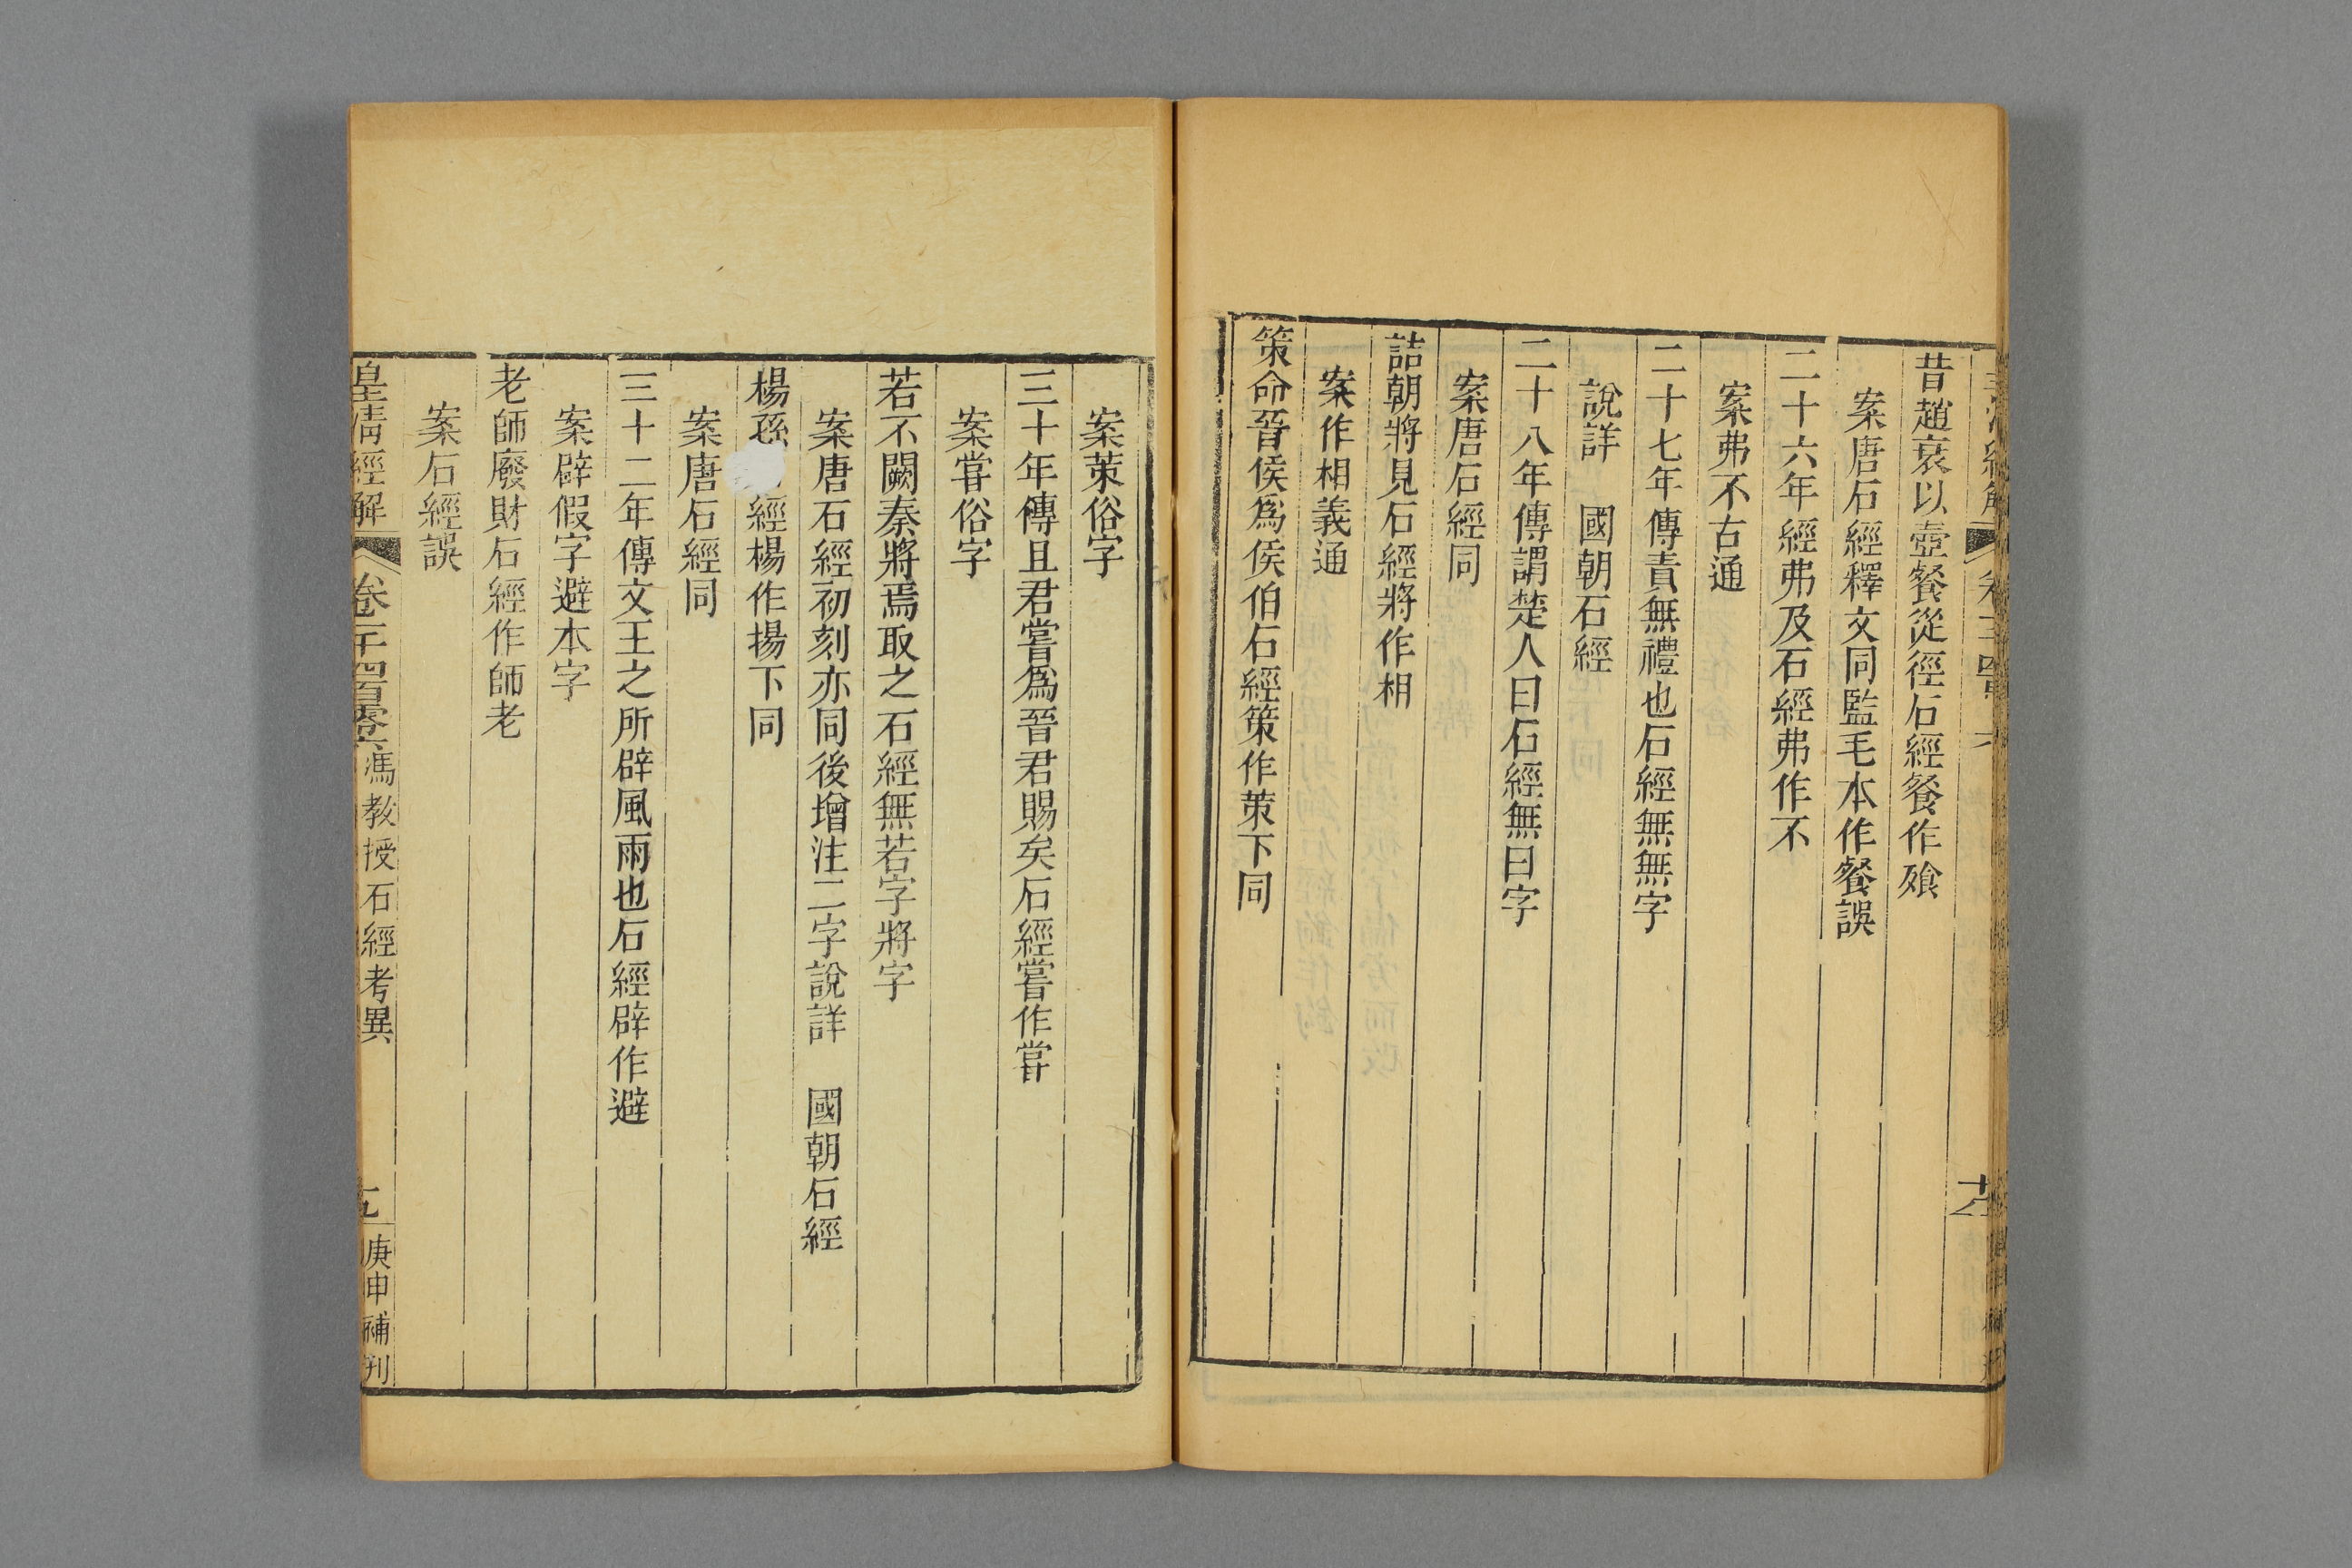 昔趙衰以壺餐從徑石經餐作飱
案唐石經釋文同監毛本作餐誤
二十六年經弗及石經弗作不
案弗不古通
二十七年傳責無禮也石經無無字
說詳　國朝石經
二十八年傳謂楚人曰石經無曰字
案唐石經同
詰朝將見石經將作相
案作相義通
策命晉侯爲侯伯石經策作䇿下同
案䇿俗字
三十年傳且君嘗爲晉君賜矣石經嘗作甞
案甞俗字
若不闕秦將焉取之石經無若字將字
案唐石經初刻亦同後增注二字說詳　國朝石經
楊孫經楊作揚下同
案唐石經同
三十二年傳文王之所辟風雨也石經辟作避
案辟假字避本字
老師廢財石經作師老
案石經誤
皇清經解
卷一千四百零六馮教授石經考異
庚申補刊